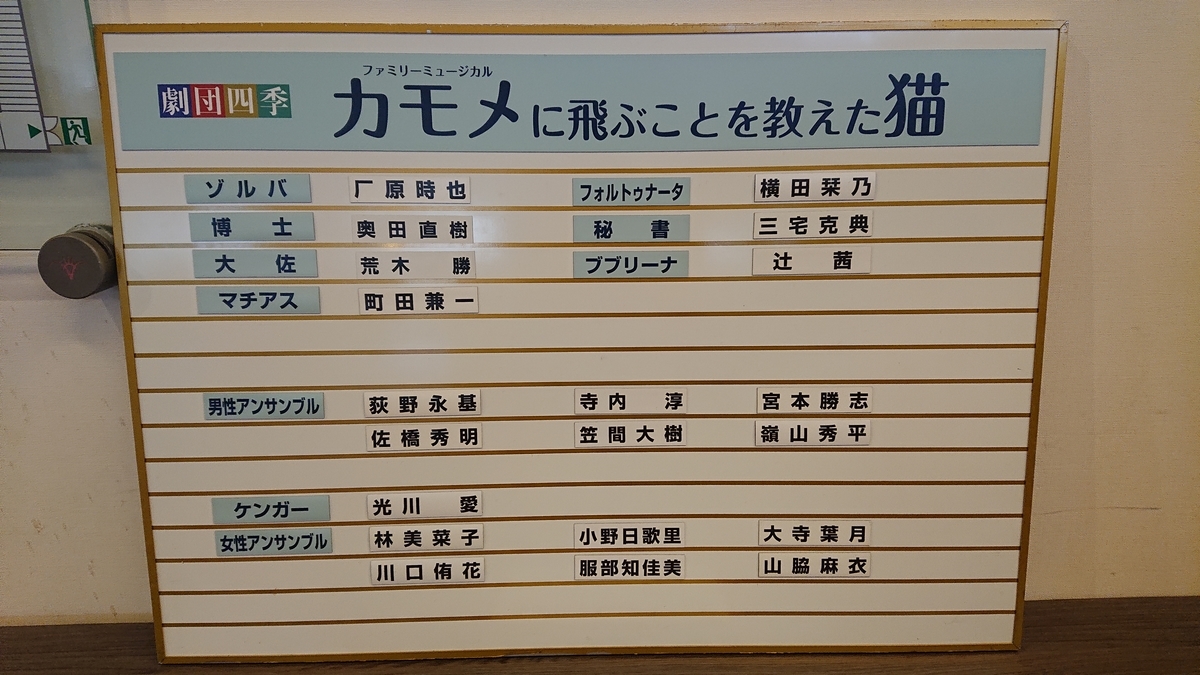 劇団四季
ファミリーミュージカル
カモメに飛ぶことを教えた猫
ゾルバ 厂原時也 フォルトゥナータ 横田栞乃
博士 奥田直樹 秘書 三宅克典
大佐 荒木勝 ブブリーナ 辻茜
マチアス 町田兼一
男性アンサンブル 荻野永基 寺内淳 宮本勝志
佐橋秀明 笠間大樹 嶺山秀平
ケンガー 光川愛
女性アンサンブル 林美菜子 小野日歌里 大寺葉月
川口侑花 服部知佳美 山脇麻衣